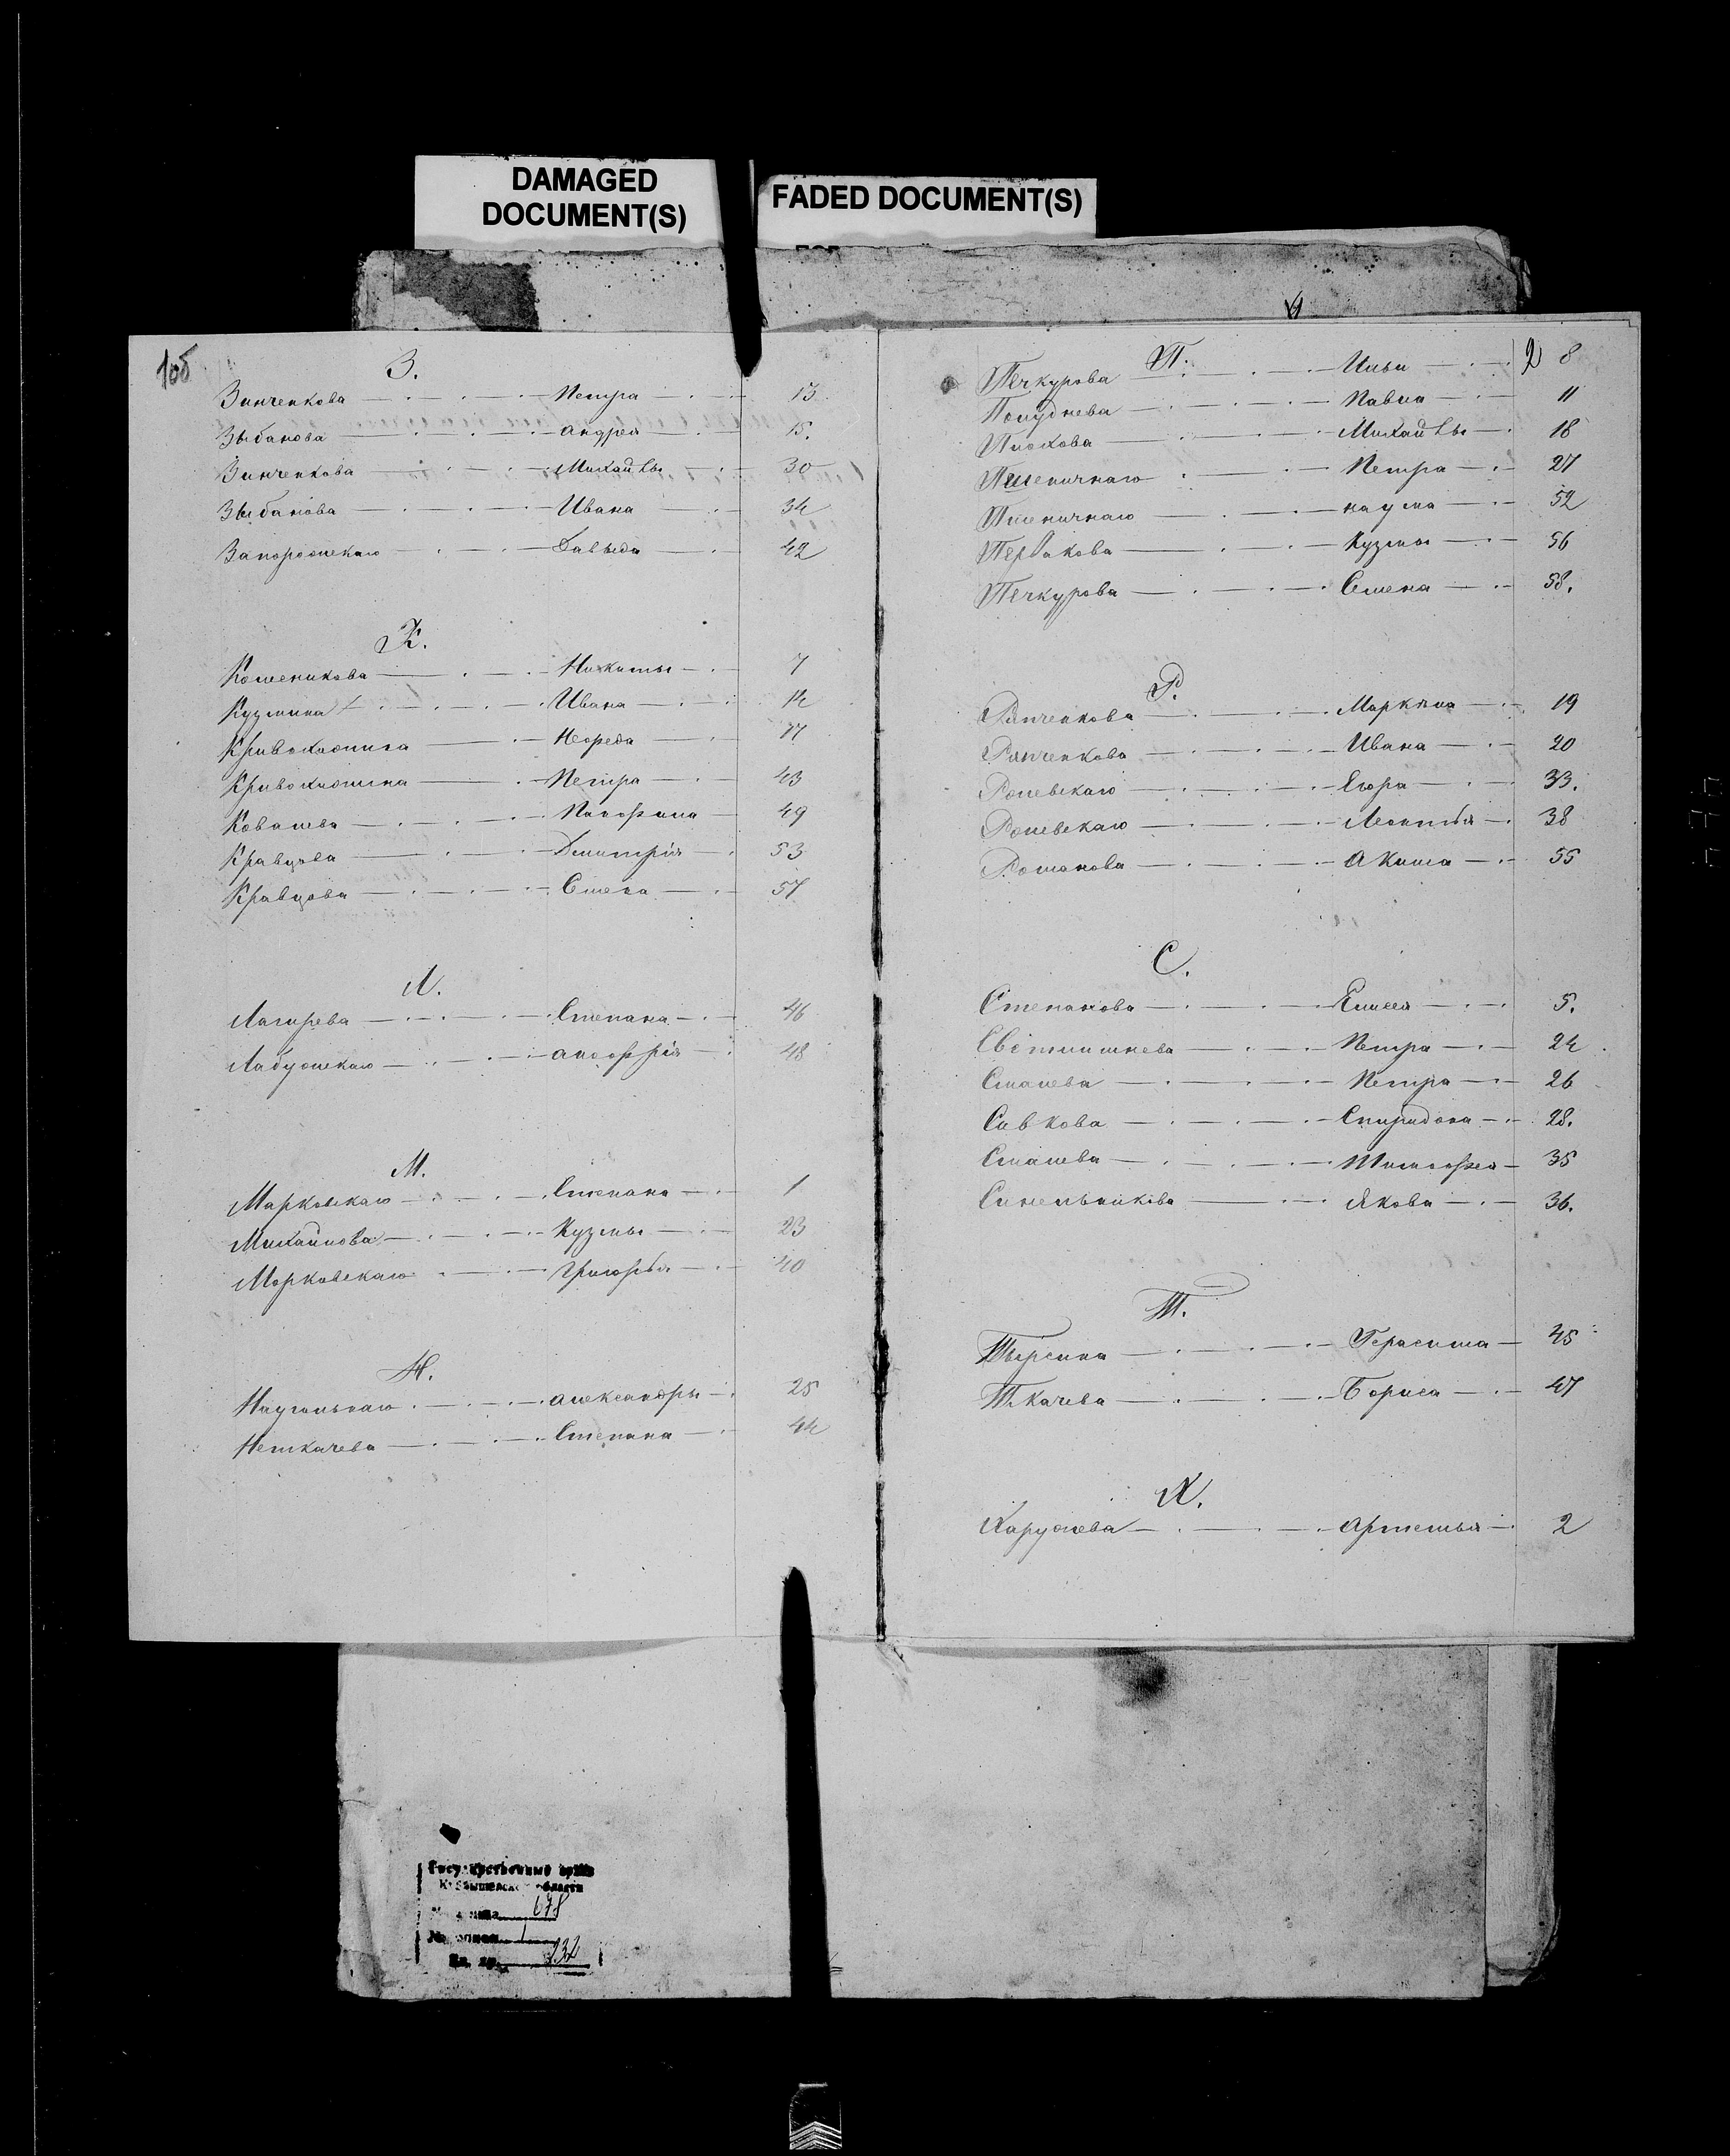 DAMAGED
DOCUMENT(S)
FADED DOCUMENT(S)
1об
З.
Зинченкова Петра 13
Зыбанова Андрея 15.
Зинченкова Михайлы 30
Зыбанова Ивана 34
Запорожскаго Давыда 42
К.
Колесникова Никиты 7
Кузмина Ивана 14
Кривохижина 17
Кривохижина Петра 43
Ковалева 49
Кравцова Дмитрія 53
Кравцова 57
Л.
Степана 46
48
М.
Марковскаго Степана 1
Михайлова Кузмы 23
Марковскаго Григорья 40
Н.
Нагольнаго Александры 25
Неткачева Степана 44
П. 2
Печкурова Ильи 8
Полуднева Павла 11
Михайлы 18
Пшеничнаго Петра 27
Пшеничнаго Наума 52
Кузмы 56
Печкурова Семена 58.
Р.
Ринченкова 19
Ринченкова Ивана 20
Ролевскаго Егора 33.
Ролевскаго Леонтья 38
Романова Акима 55
С.
Степанова Елисея 5.
Петра 24
Смалева Петра 26
Савкова Спиридона 28.
Смалева Тимофея 35
Синельникова Якова 36.
Т.
Тырсина Герасима 45
Ткачева Бориса 47
Х.
Харужева Артемья 2
678
1
132